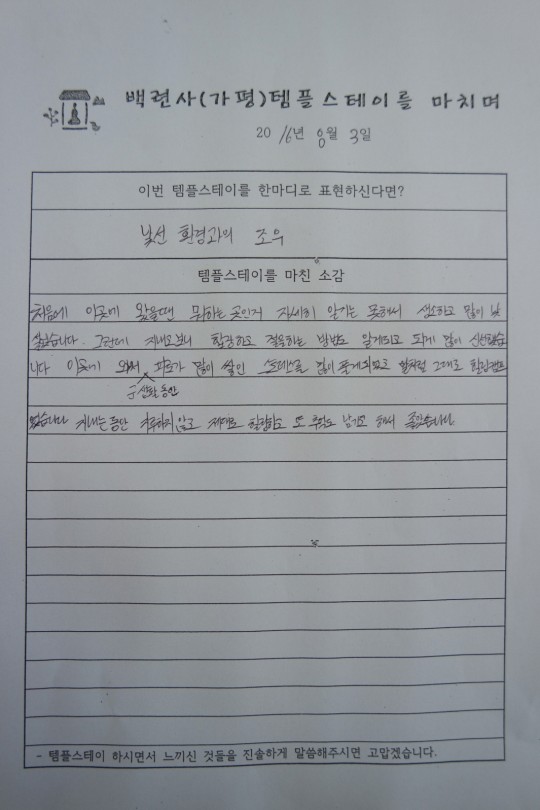 백련사(가평)템플스테이를 마치며
2016년 8월 3일
이번 템플스테이를 한마디로 표현하신다면?
낯선 환경과의 조우
템플스테이를 마친 소감
처음에 이곳에 왔을때 뭐하는 곳인지 자세히 알지는 못해서 생소하고 많이 낯
설었습니다. 그런데 지내보니 합장하고 절을하는 방법도 알게되고 되게 많이 신선했습
니다 이곳에 와서 피로가 많이 쌓인 스트레스를 많이 풀게되었고 말처럼 그대로 힐링캠프
군생활동안
였습니다 지내는동안 지루하지 않고 제대로 힐링하고 또 추억도 남기고 해서 좋았습니다
- 템플스테이 하시면서 느끼신 것들을 진솔하게 말씀해주시면 고맙겠습니다.